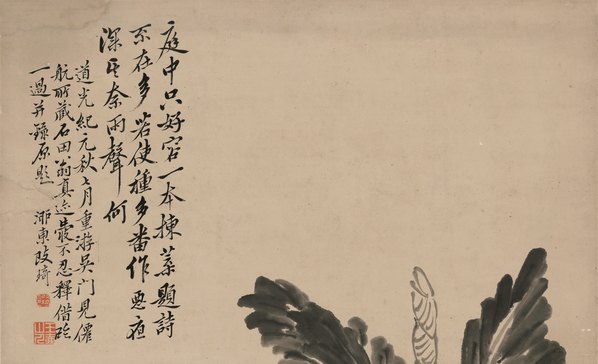 庭中只好容一本揀葉題詩
不在多若使種多番作惡夜
深其奈雨聲何
道光紀元秋七月重游吳門見僊
航所藏石田翁真迹愛不忍釋借臨
一過并錄原題 泖東改琦